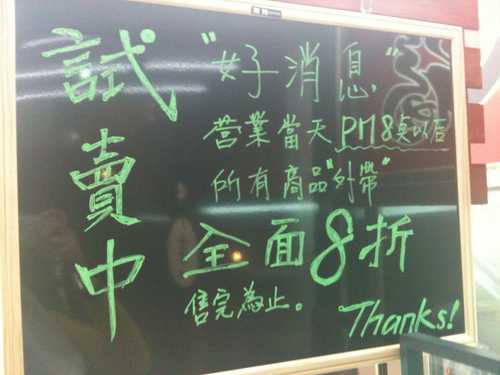 試賣中
"好消息"
营業當天PM8点以后
所有商品"外帶"
全面8折
售完為止。
Thanks!